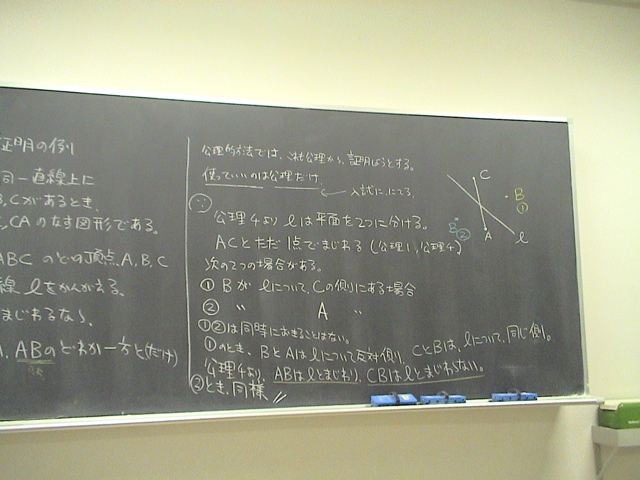 証明の例
同一直線上に
B, Cがあるとき、
, CAのなす図形である。
ABCのどの頂点A, B, C
線ℓをかんがえる。
まじわるなら、
, ABのどれか一方と(だけ)
公理的方法では、これも公理から、証明しようとする。
使っていいのは公理だけ
← 入試に、にてる。
公理4より ℓは平面を2つに分ける。
ACとただ1点でまじわる (公理1, 公理4)
次の2つの場合がある。
① Bがℓについて、Cの側にある場合
② 〃 A 〃
①②は同時におきることはない。
①のとき、BとAはℓについて反対側、CとBは、ℓについて、同じ側。
公理4より、ABはℓとまじわり、CBはℓとまじわらない。
②とき、同様 〃
C
B
①
B
②
A
ℓ